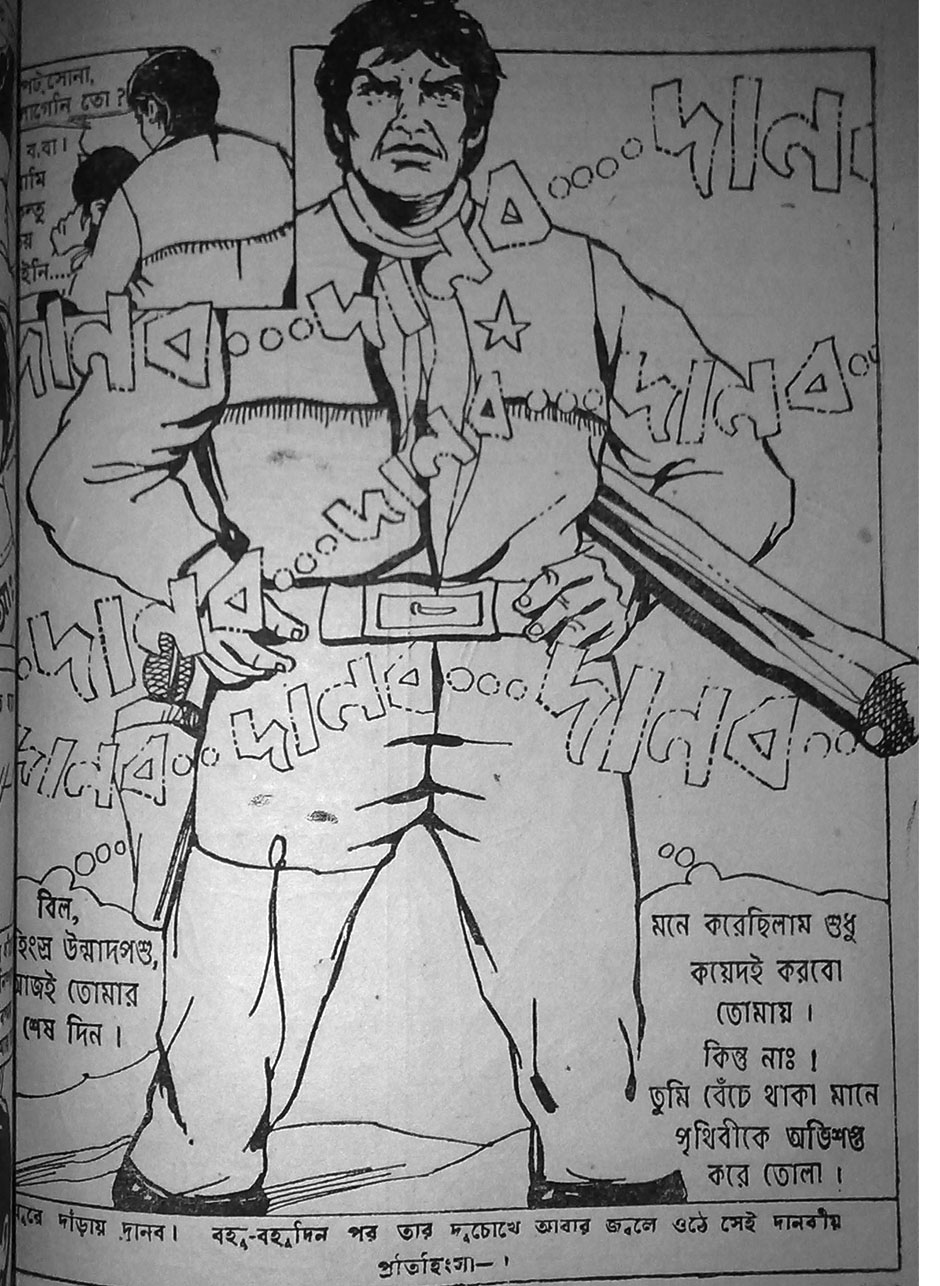 সোনা,
তো ?
ব.বা।
দানব
দানব....দানব....দান
দানব....দানব....দানব..
দানব...দানব....দানব
দানব..দানব....দানব....
বিল,
হিংস্র উন্মাদপশু,
আজই তোমার
শেষ দিন।
মনে করেছিলাম শুধু
কয়েদই করবো
তোমায়।
কিন্তু নাঃ!
তুমি বেঁচে থাকা মানে
পৃথিবীকে অভিশপ্ত
করে তোলা।
দাঁড়ায় দানব। বহু-বহুদিন পর তার দুচোখে আবার জ্বলে ওঠে সেই দানবীয়
প্রতিহিংসা—।